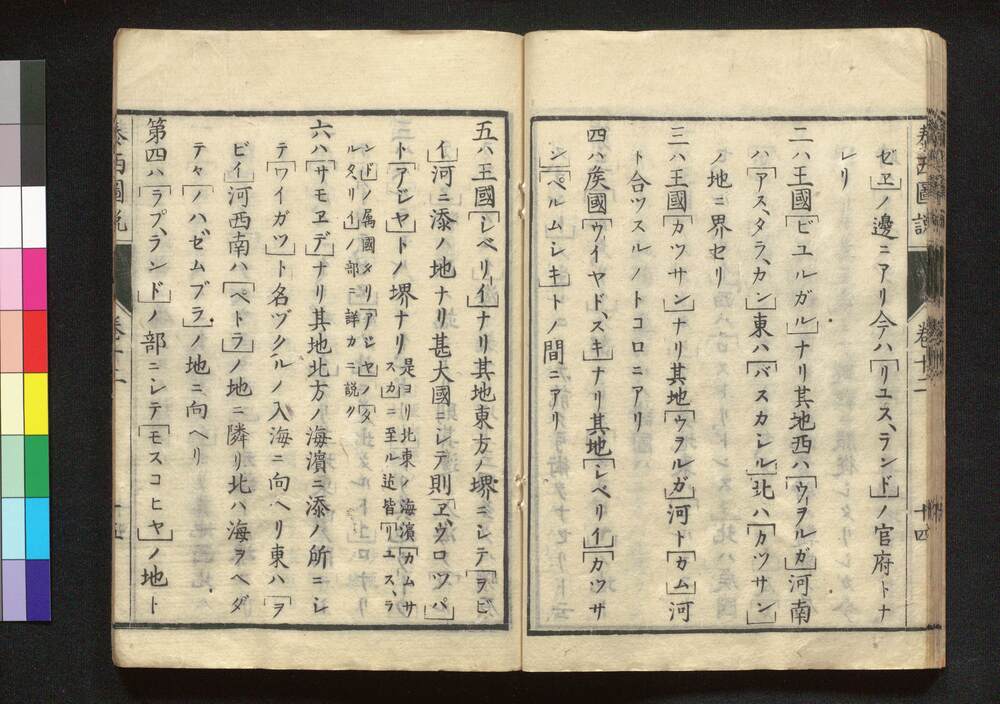 泰西圖說 卷十二 十四
ゼヱ」ノ邊ニアリ今ハ「リユス、ランド」ノ官府トナ
レリ
二ハ王國「ビユルガル」ナリ其地西ハ「ウヲルガ」河南
ハ「アス、タラ、カン」東ハ「バスカシル」北ハ「カツサン」
ノ地ニ界セリ
三ハ王國「カツサン」ナリ其地「ウヲルガ」河ト「カム」河
ト合ツスルノトコロニアリ
四ハ矦國「ウイヤド、スキ」ナリ其地「シベリイ」「カツサ
ン」「ペルムシキ」トノ間ニアリ
五ハ王國「シベリイ」ナリ其地東方ノ堺ニシテ「ヲビ
イ」河ニ添ノ地ナリ甚大國ニシテ則「ヱウロツパ」
ト「アシヤ」トノ堺ナリ
是ヨリ北東ノ海濱「カムサ
スカ」ニ至ル迠皆「リユス、ラ
ンド」ノ属國タリ「アシヤ」ノ「タ
ルタリイ」ノ部ニ詳カニ説ク
六ハ「サモヱデ」ナリ其地北方ノ海濱ニ添ノ所ニシ
テ「ワイガツ」ト名ヅクルノ入海ニ向ヘリ東ハ「ヲ
ビイ」河西南ハ「ペトラ」ノ地ニ隣リ北ハ海ヲヘダ
テヽ「ノハゼムブラ」ノ地ニ向ヘリ
第四ハ「ラプ、ランド」ノ部ニシテ「モスコヒヤ」ノ地ト
泰西圖說 卷十二 十五